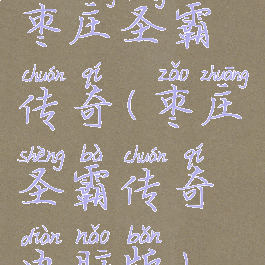 枣庄圣霸
chuán qí zǎo zhuāng
传奇(枣庄
shèng bà chuán qí
圣霸传奇
diàn nǎo bǎn
电脑版)